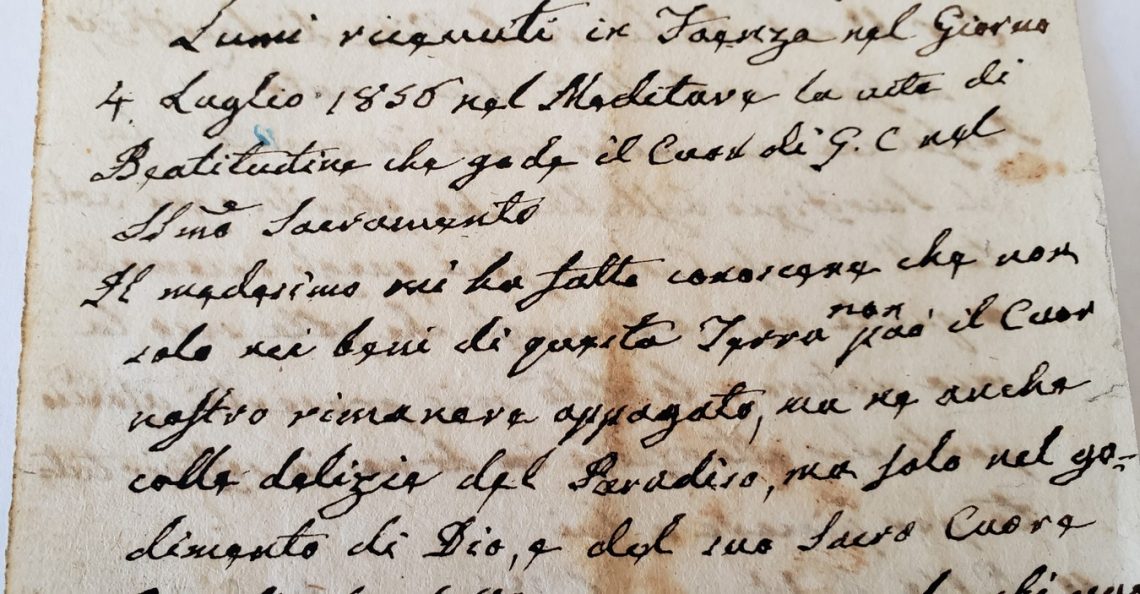 Lumi ricevuti in Faenza nel Giorno
4. Luglio 1856 nel Meditare la vita di
Beatitudine che gode il Cuor di G. C nel
SSmo Sacramento
Il medesimo mi ha fatto conoscere che non
solo nei beni di questa Terra non può il Cuor
nostro rimanere appagato, ma ne anche
colle delizie del Paradiso, ma solo nel go-
dimento di Dio, e del suo Sacro Cuore